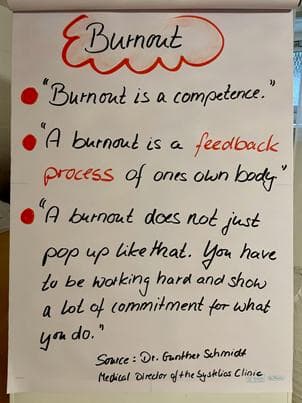 Burnout
"Burnout is a competence."
"A burnout is a feedback
process of ones own body"
"A burnout does not just
pop up like that. You have
to be working hard and show
a lot of commitment for what
you do."
Source: Dr. Gunther Schmidt
Medical Director of the Systelios Clinic